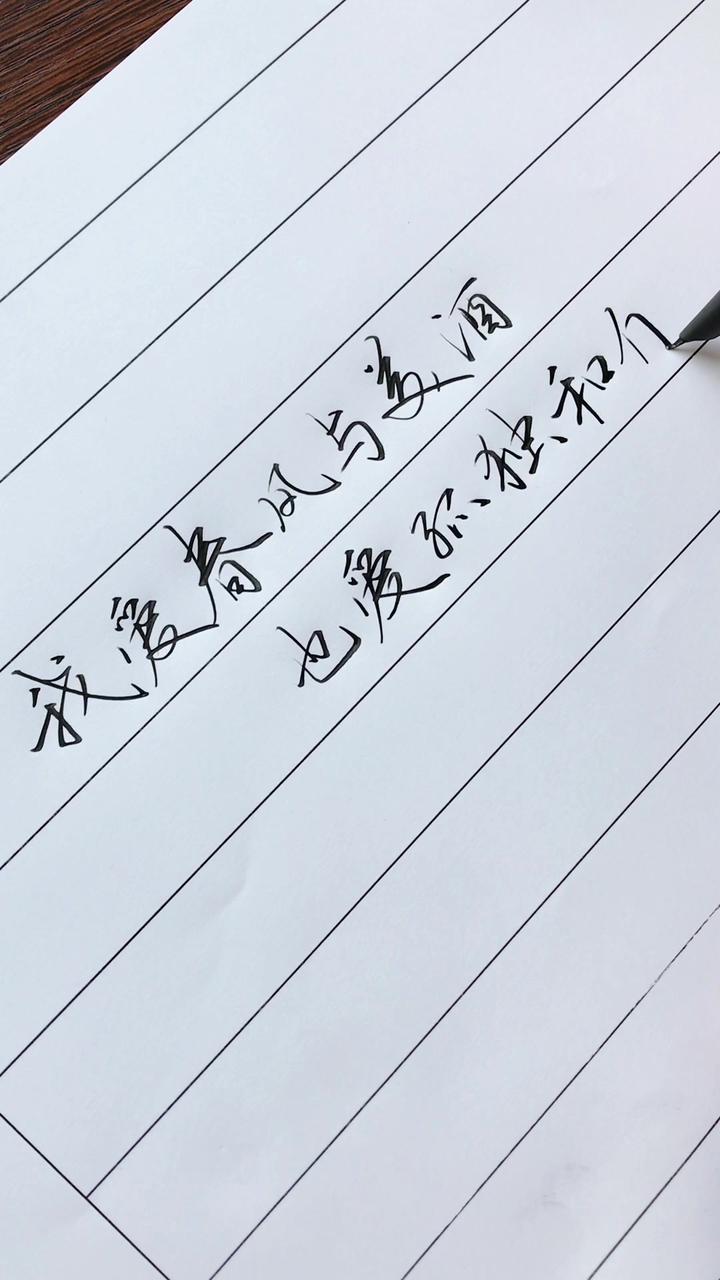 我爱春风与美酒
也爱孤独和